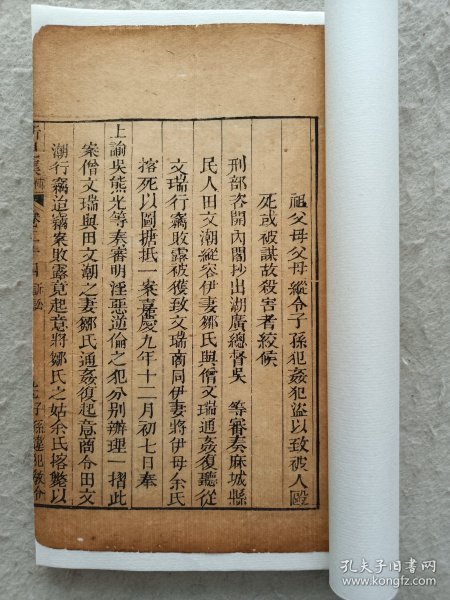 祖父母父母縱令子孫犯姦犯盜以致被人毆
死或被謀故殺害者絞候
刑部咨開內閣抄出湖廣總督吳 等審奏麻城縣
民人田文潮縱容伊妻鄒氏與僧文瑞通姦復聽從
文瑞行竊敗露被獲致文瑞商同伊妻將伊母余氏
搭死以圖搪抵一案嘉慶九年十二月初七日奉
上諭吳熊光等奏審明淫惡逆倫之犯分別辦理一摺此
案僧文瑞與田文潮之妻鄒氏通姦復起意商令田文
潮行竊迨竊案敗露竟起意將鄒氏之姑余氏搭斃以
卷二十四 訴訟 子孫違犯教令
孔夫子旧书网
www.kongfz.com